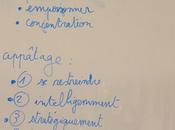 • empoisonner
• concentration
appâtage :
• ① se restreindre
• ② intelligemment
• ③ stratégiquement